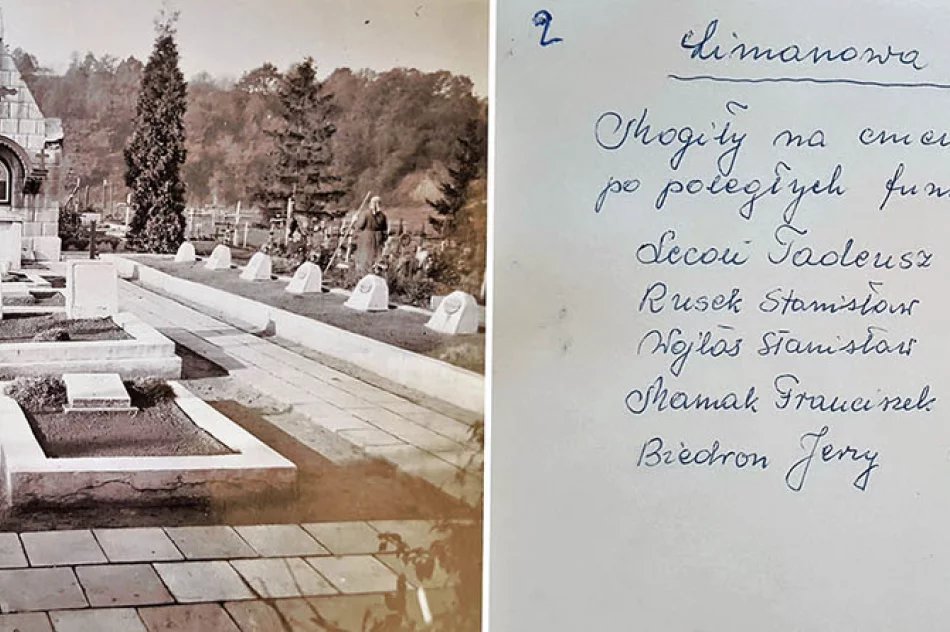 2
Limanowa
Mogiły na cmen
po poległych fun
Lecoń Tadeusz
Rusek Stanisław
Wojtas Stanisław
Mamak Franciszek
Biedron Jerzy